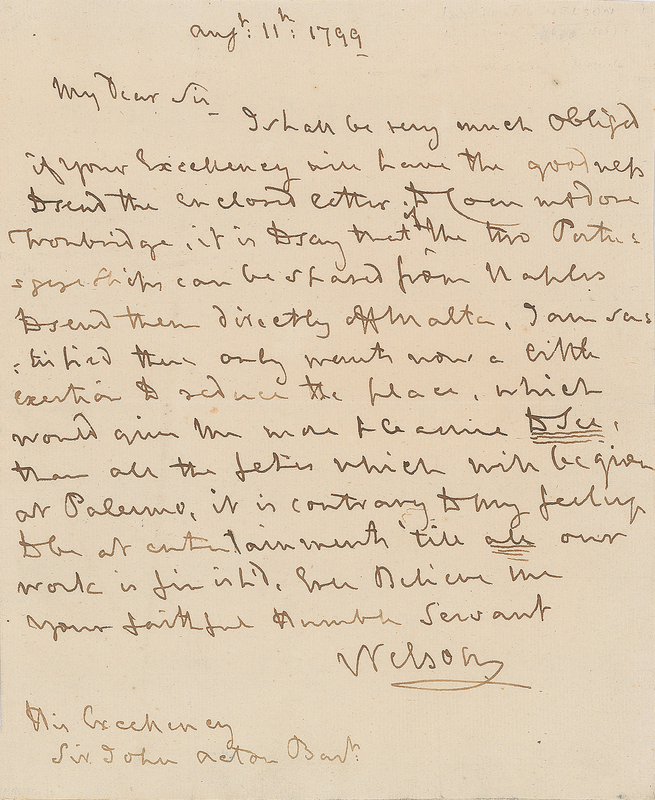 Augt: 11th: 1799
My Dear Sir
I shall be very much obliged
if your Excellency will have the goodness
to send the enclosed letter to Commodore
Troubridge, it is to say that if the two Portu=
=gueze Ships can be spared from Naples
to send them directly off Malta, I am sa=
=tisfied there only wants now a little
exertion to reduce the place, which
would give me more pleasure to see,
than all the fetes which will be given
at Palermo, it is contrary to my feelings
to be at entertainments 'till all our
work is finish'd. Ever Believe me
your faithful Humble Servant
Nelson
His Excellency
Sir John Acton Bart: